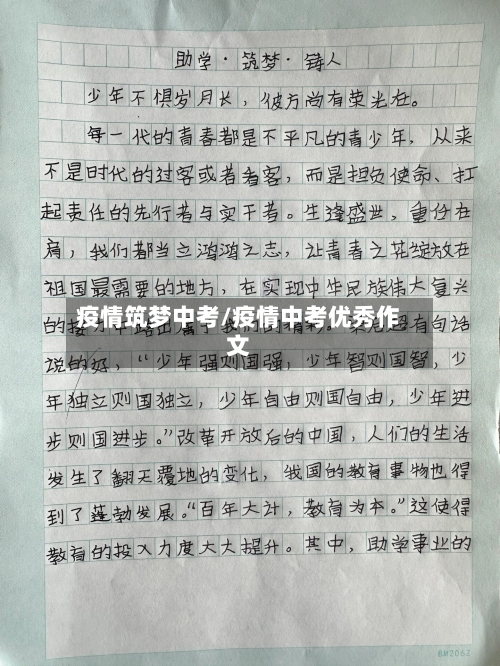 助学·筑梦·铸人
少年不惧岁月长，彼方尚有荣光在。
每一代的青春都是不平凡的青少年，从来
不是时代的过客或者看客，而是担负使命、扛
起责任的先行者与实干者。生逢盛世，重任在
肩，我们都当立鸿鸿之志，让青春之花绽放在
祖国最需要的地方，在实现中华民族伟大复兴
疫情筑梦中考/疫情中考优秀作
文
说的好，“少年强则国强，少年智则国智，少
年独立则国独立，少年自由则国自由，少年进
步则国进步。”改革开放后的中国，人们的生活
发生了翻天覆地的变化，我国的教育事物也得
到了蓬勃发展。“百年大计，教育为本。”这使得
教育的投入力度大大提升。其中，助学事业的